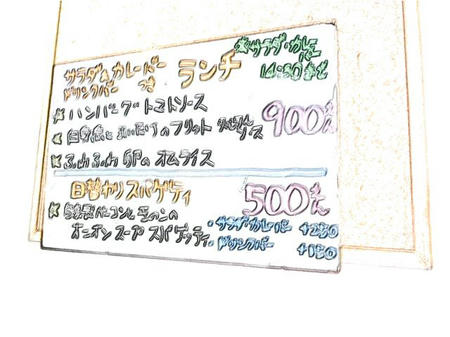 サラダ&カレーバー
ドリンクバー つき ランチ
※サラダ・カレー
14:30まで
※ハンバーグトマトソース
のフリット ソース 900えん
※ふわふわ卵のオムライス
日替わりスパゲティ 500えん
※自家製ベーコンときのこの
オニオンスープスパゲッティ
・サラダ・カレーバー +250
・ドリンクバー +150